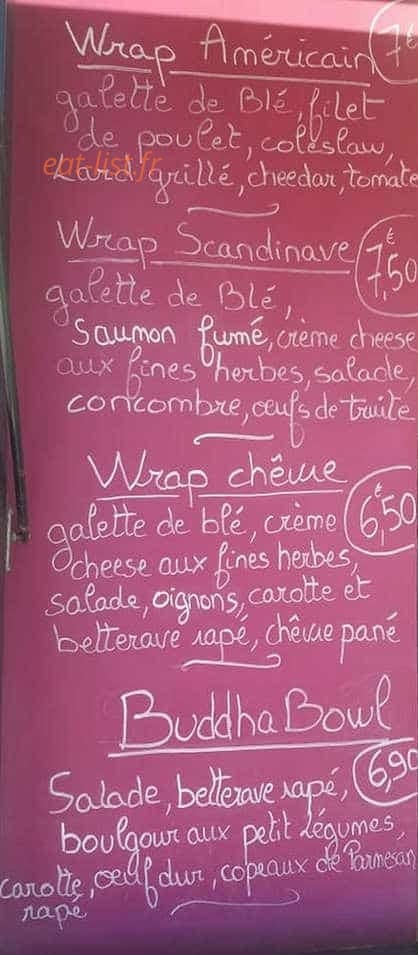 Wrap Américain 7€
galette de Blé, filet
de poulet, coleslaw,
eat-list.fr
Lard grillé, cheedar, tomate
Wrap Scandinave 7,50€
galette de Blé,
Saumon fumé, crème cheese
aux fines herbes, salade,
concombre, œufs de truite
Wrap chêvre
galette de blé, crème 6,50€
cheese aux fines herbes,
salade, oignons, carotte et
betterave rapé, chêvre pané
Buddha Bowl
Salade, betterave rapé, 6,90
boulgour aux petit légumes,
carotte, œuf dur, copeaux de Parmesan
rapé